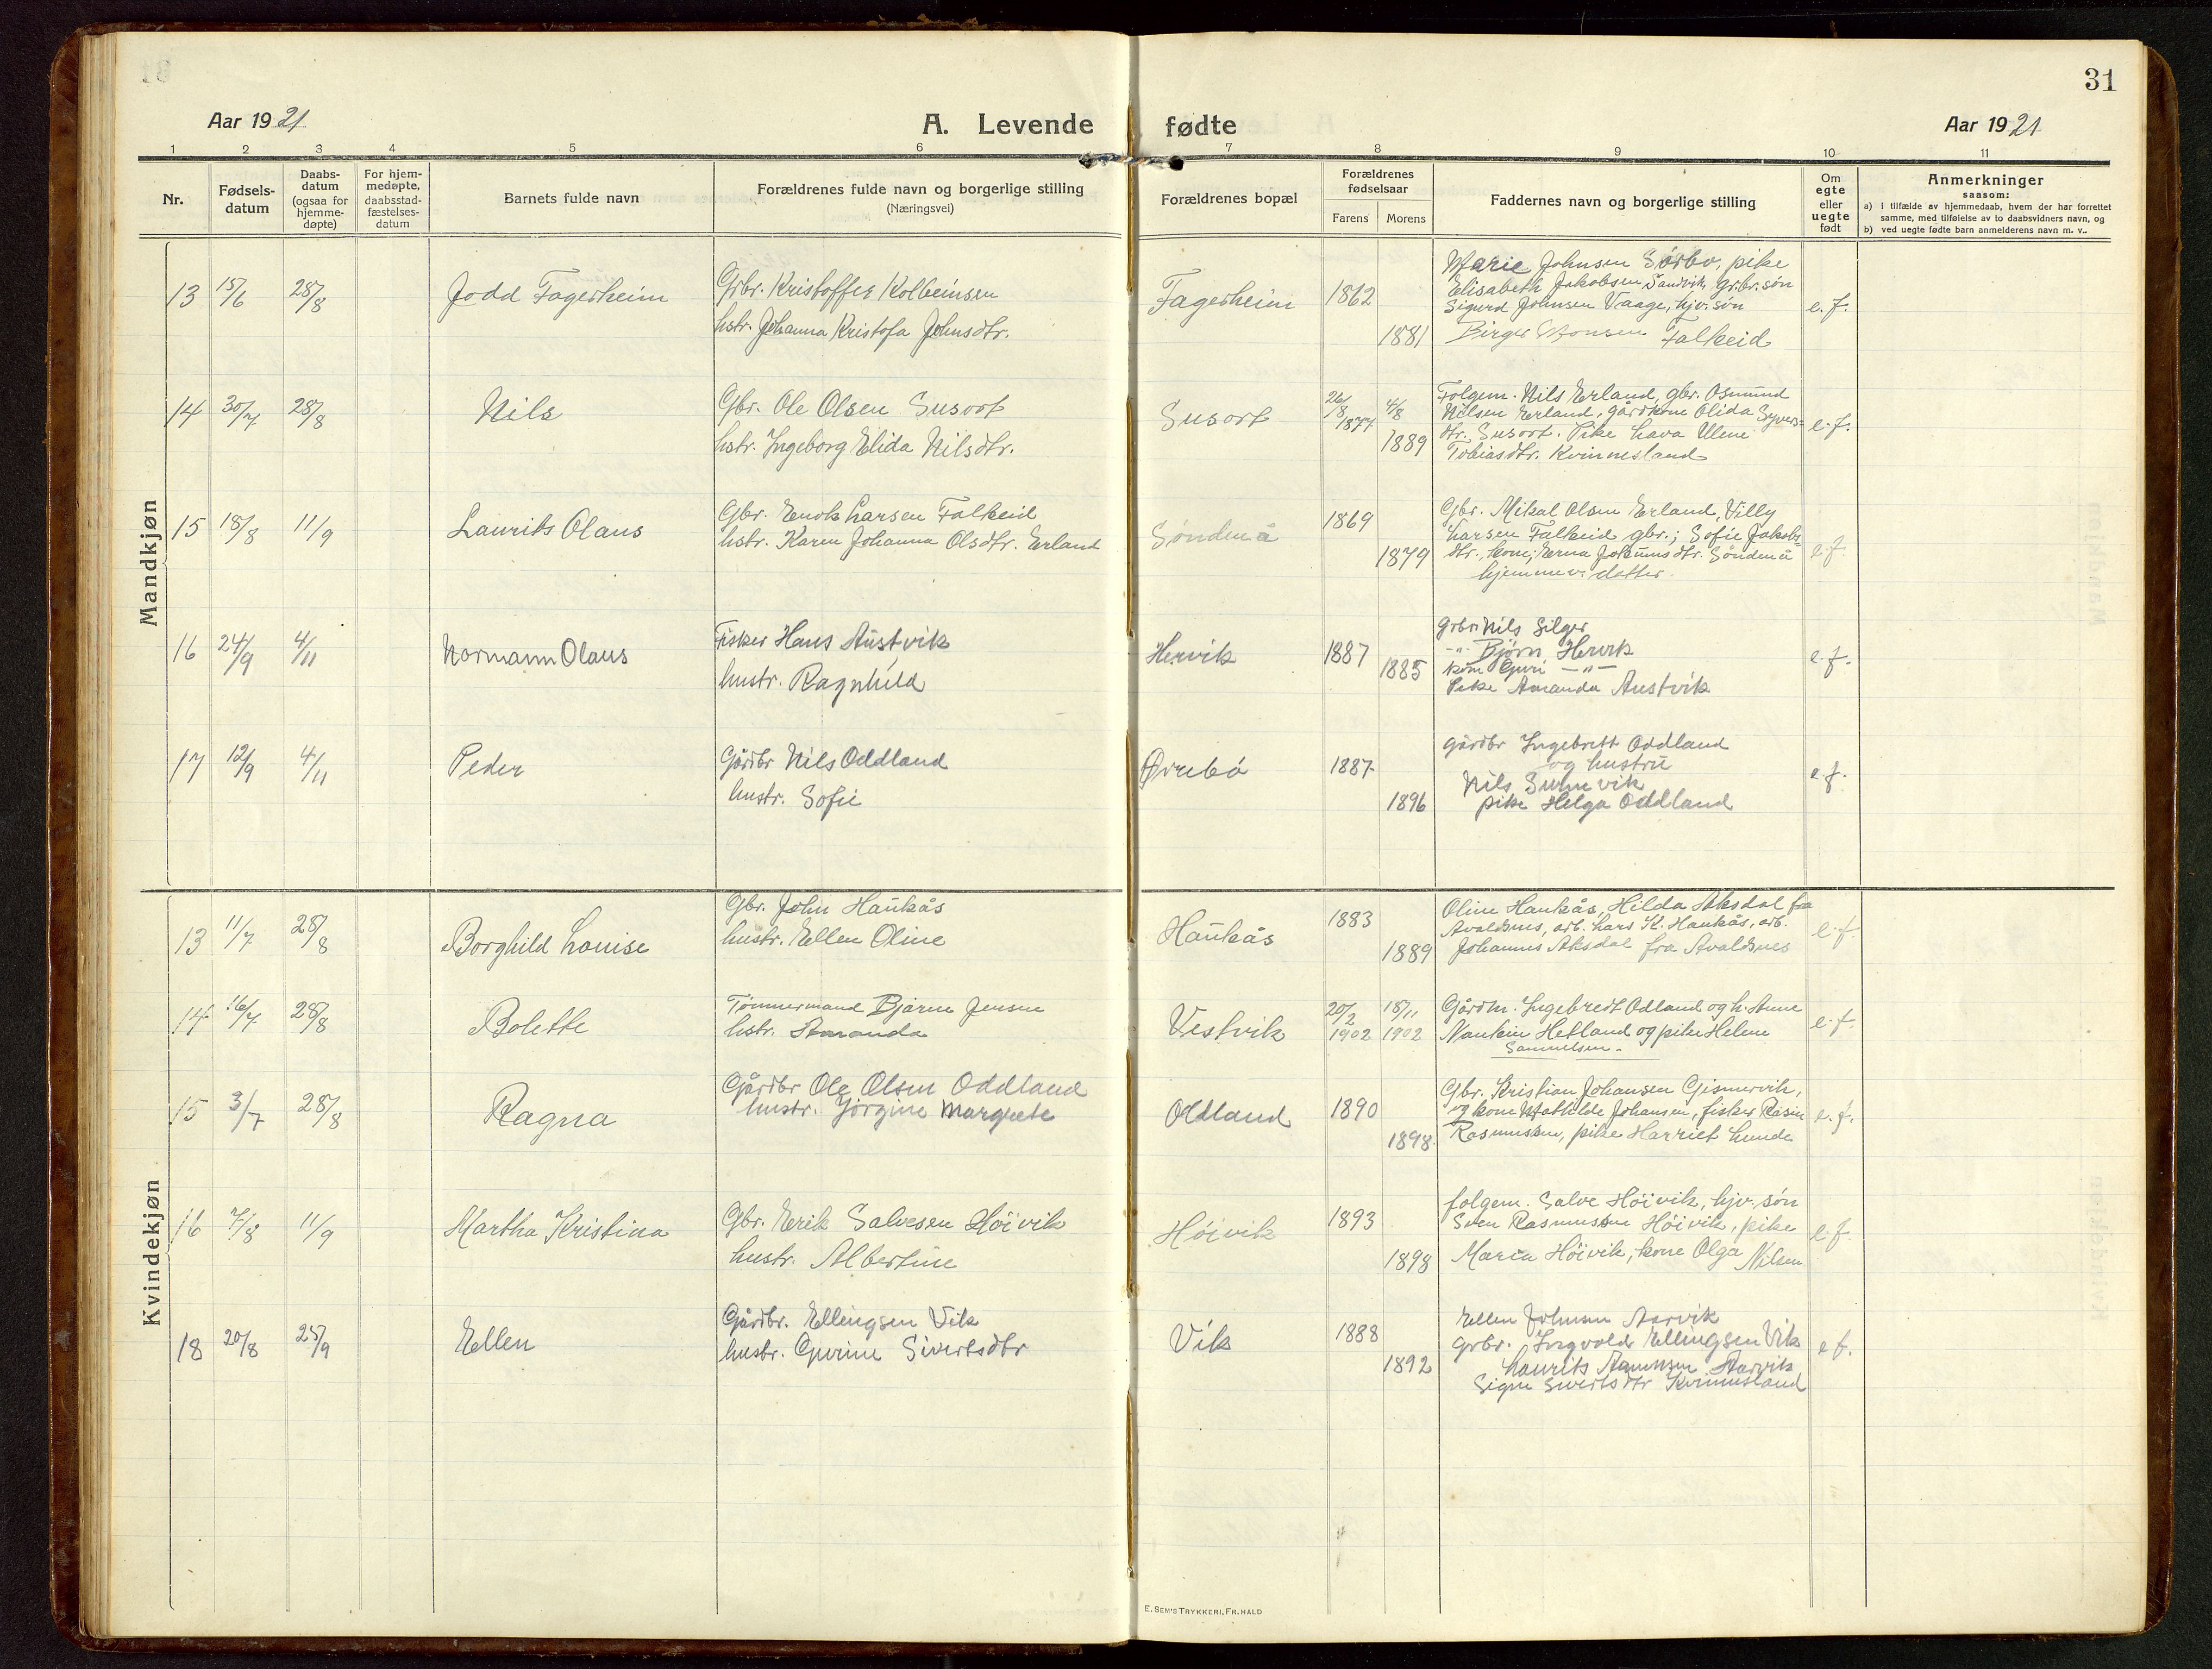 31
Aar 1921
A. Levende fødte
Aar 1921
1 2 3 4 5 6 7 8 9 10 11
Nr.
Fødsels-
datum
Daabs-
datum
(ogsaa for
hjemme-
døpte)
For hjem-
medøpte,
daabsstad-
fæstelses-
datum
Barnets fulde navn
Forældrenes fulde navn og borgerlige stilling
(Næringsvei)
Forældrenes bopæl
Forældrenes
fødselsaar
Farens
Morens
Faddernes navn og borgerlige stilling
Om
egte
eller
uegte
født
Anmerkninger
saasom:
a) i tilfælde av hjemmedaab, hvem der har forrettet
samme, med tilføielse av to daabsvidners navn, og
b) ved uegte fødte barn anmelderens navn m. v..
Mandkjøn
13 15/6 28/8 Jodd Fagerheim
Grbr. Kristoffer Kolbeinsen
hstr. Johanna Kristofa Johnsdtr.
Fagerheim 1862
1881
Marie Johnsen Sørbø, pike
Elisabeth Jakobsen Sandvik, Grbr. søn
Sigurd Johnsen Vaage, hjv. søn
Birger Falkeid
e. f.
14 30/7 28/8 Nils
Gbr. Ole Olsen Susort
hstr. Ingeborg Elida Nilsdtr.
Susort
26/8 1877
4/8 1889
Folgem. Nils Erland, gbr. Osmund
Nilsen Erland, gårdkone Olida Syvers-
dtr. Susort. Pike Lava Ulene
Tobiasdtr. Kvinnesland
e. f.
15 18/8 11/9 Laurits Olaus
Gbr. Enok Larsen Falkeid
hstr. Karen Johanna Olsdtr. Erland
Søndenå 1869
1879
Gbr. Mikal Olsen Erland, Villy
Larsen Falkeid gbr.; Sofie Jakobs-
dtr., kone; Erna Johannsdtr. Søndenå
hjemmev. datter.
e. f.
16 24/9 4/11 Normann Olaus
Fisker Hans Austvik
hustr. Ragnhild
Hervik 1887
1885
Grbr. Nils Silger
-"- Bjørn Hervik
kone Guri -"-
Pike Amanda Austvik
e. f.
17 12/9 4/11 Peder
Gårdbr Nils Oddland
hustr. Sofie
Ørrebø 1887
1896
gårdbr Ingebrett Oddland
og hustru
Nils
pike Helga Oddland
e. f.
Kvindekjøn
13 11/7 28/8 Borghild Louise
Gbr. John Haukås
hustr. Ellen Oline
Haukås 1883
1889
Oline Haukås, Hilda Aksdal fra
Avaldsnes, arb. Lars K. Haukås, arb.
Johannes Aksdal fra Avaldsnes
e. f.
14 16/7 28/8 Bolette
Tømmermand Bjarne Jensen
hstr. Amanda
Vestvik
20/2 1902
18/11 1902
Gårdm. Ingebredt Odland og h. Anne
Hetland og pike Helene
Samuelsen.
e. f.
15 3/7 28/8 Ragna
Gårdbr Ole Olsen Oddland
hustr. Jørgine Margrete
Oddland 1890
1898
Gbr. Kristian Johansen Gismervik,
og kone Mathilde Johansen, fisker Rasin
Rasmussen, pike Harriet Lunde
e. f.
16 7/8 11/9 Martha Kristina
Gbr. Erik Salvesen Høivik
hustr. Albertine
Høivik 1893
1898
folgem. Salve Høivik, hjv. søn
Sven Rasmussen Høivik, pike
Maria Høivik, kone Olga Nilsen
e. f.
18 20/8 25/9 Ellen
Gårdbr. Ellingsen Vik
hustr. Gurine Sivertsdtr
Vik 1888
1892
Ellen Johnsen Aarvik
grbr. Ingvald Ellingsen Vik
Laurits Aarvik
Signe Sivertsdtr Kvinnesland
e f.
E. SEM'S TRYKKERI, FR. HALD